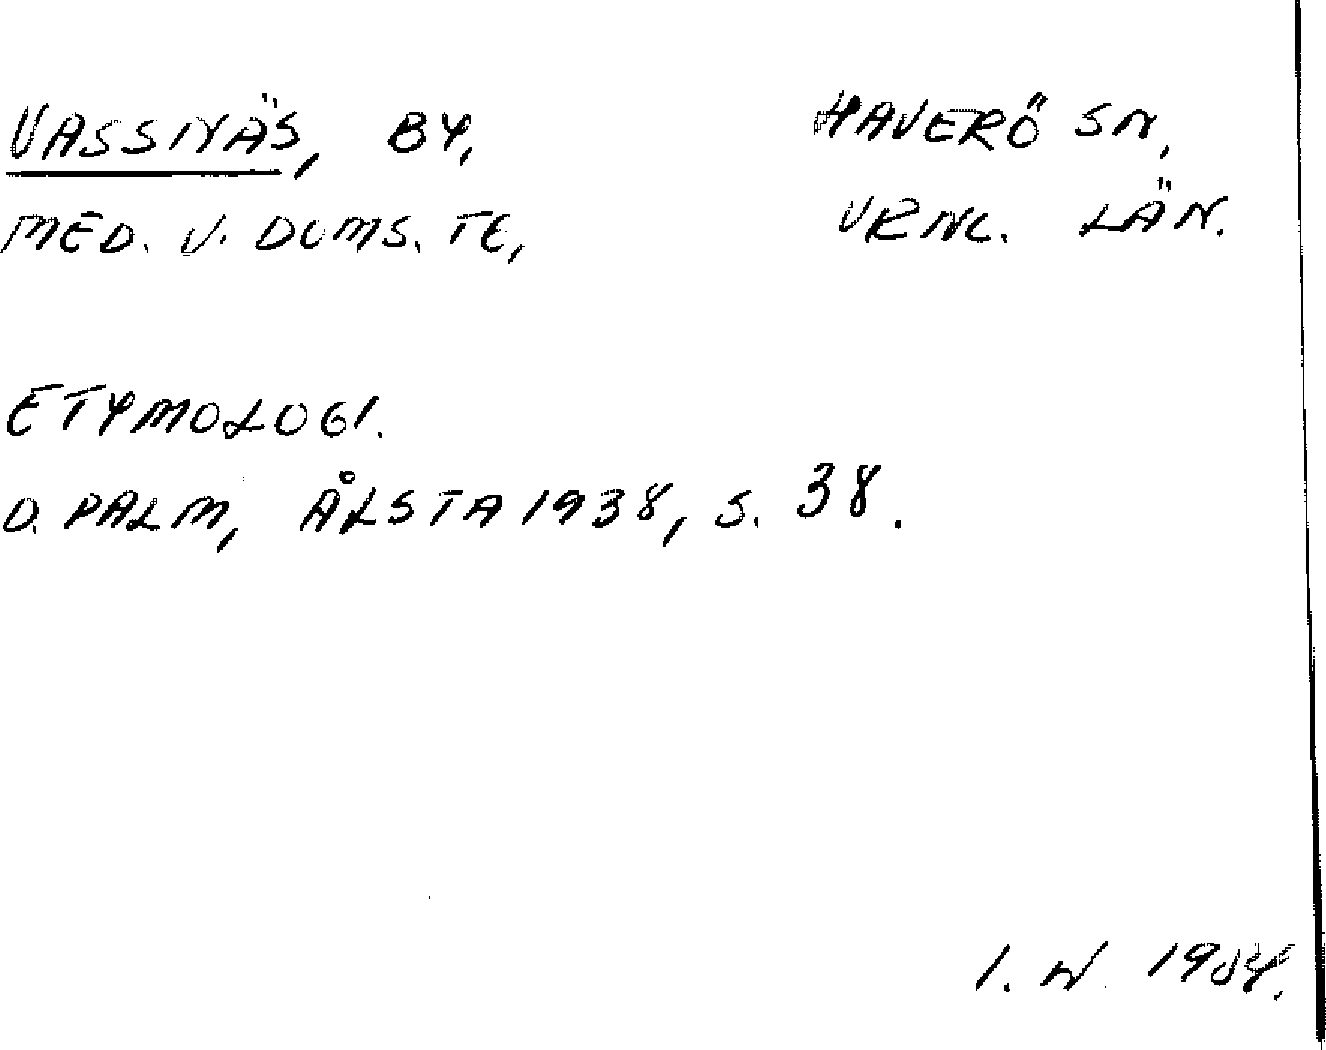 VASSNÄS, BY, HAVERÖ SN,
MED. V. DOMS. TE, VRNL. LÄN.
ETYMOLOGI.
D. PALM, ÅLSTA 1938, S. 38.
I. N.